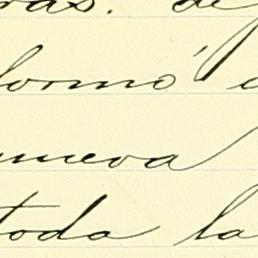 ras. de
formó
nueva
toda la